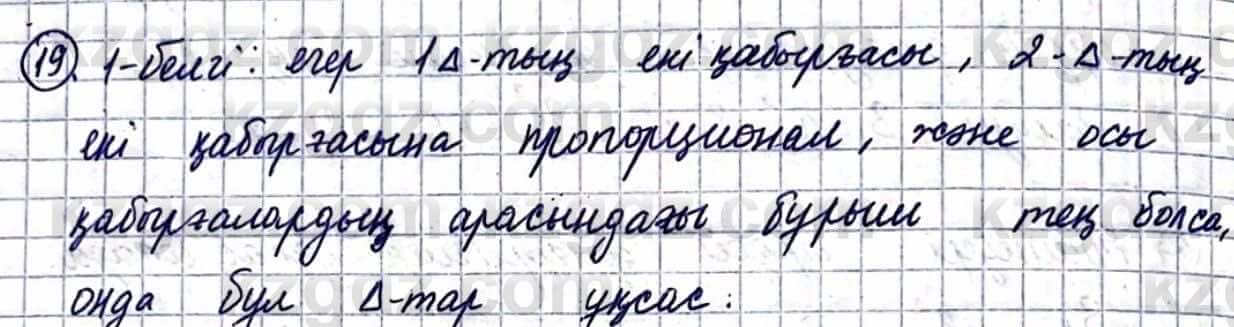 19. 1-белгі: егер 1Δ-тың екі қабырғасы, 2-Δ-тың
екі қабырғасына пропорционал, және осы
қабырғалардың арасындағы бұрыш тең болса,
онда бұл Δ-тар ұқсас: